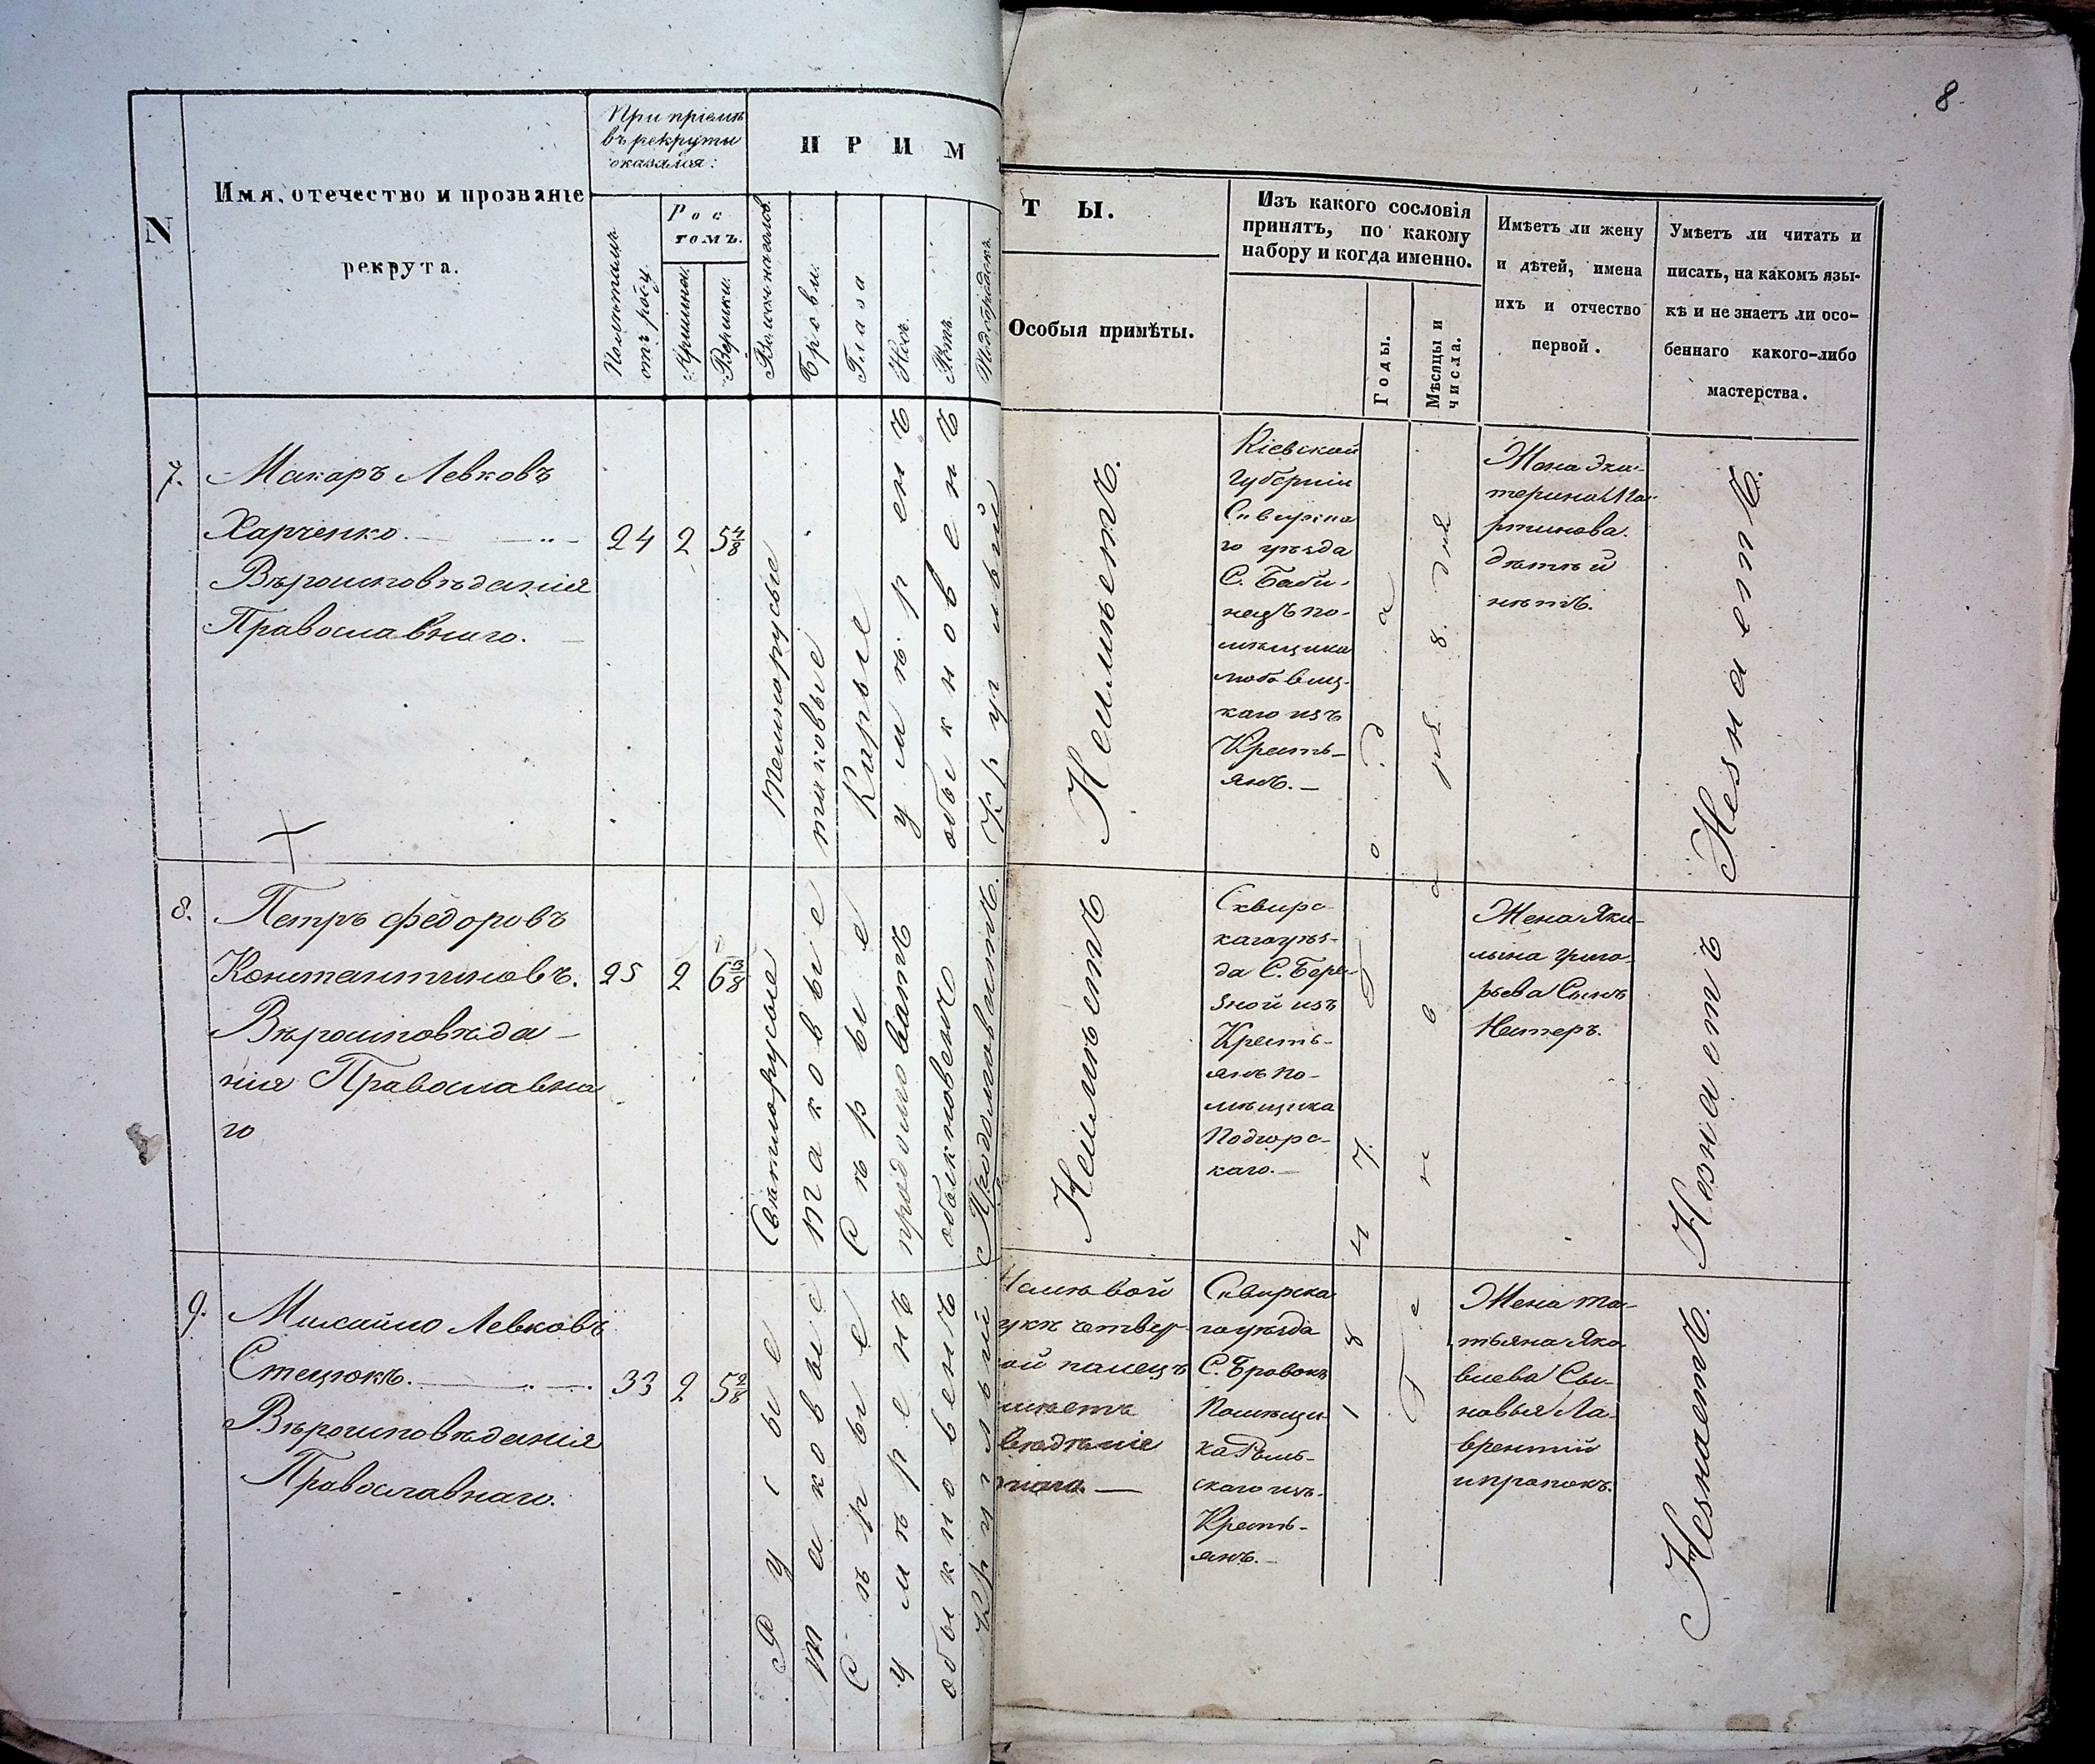 8
N
Имя, отечество и прозваніе
рекрута.
При пріемѣ
въ рекруты
оказался:
Полѣтамъ
отъ роду
Рос
томъ.
Аршины.
Вершки.
Волосы на голов.
П Р И М
Брови.
Глаза
Носъ.
Ротъ.
Подбородокъ.
Т Ы.
Особыя примѣты.
Изъ какого сословія
принятъ, по какому
набору и когда именно.
Годы.
Мѣсяцы и
числа.
Имѣетъ ли жену
и дѣтей, имена
ихъ и отчество
первой.
Умѣетъ ли читать и
писать, на какомъ язы-
кѣ и не знаетъ ли осо-
беннаго какого-либо
мастерства.
7.
Макаръ Левковъ
Харченко.
Вѣроисповѣданія
Православнаго.
24
2
5 4/8
Темнорусые
таковые
Карые
умѣренъ
обыкновенъ
Круглый
Неимѣетъ.
Кіевской
Губерніи
Сквирска
го уѣзда
С. Баби-
нецъ по-
мѣщика
каго изъ
Кресть-
янъ.
Жена Эка-
терина Ма-
ртинова.
дѣтей
нѣтъ.
Незнаетъ.
8.
Петръ Федоровъ
Константиновъ.
Вѣроисповѣда-
нія Православна
го
25
2
6 3/8
Свѣтлорусые
таковые
Сѣрые
продолговатъ
обыкновенъ
Продолговатъ.
Неимѣетъ
Сквирс-
кагоуѣз-
да С. Бере-
зной изъ
Кресть-
янъ по-
мѣщика
Подгорс-
каго.
Жена Яки-
лына Григо-
рьева Сынъ
Нестеръ.
Незнаетъ
9.
Михайло Левковъ
Стецюкъ.
Вѣроисповѣданія
Православнаго.
33
2
5 2/8
Русые
Таковые
Сѣрые
Умѣренъ
обыкновенъ
Круглый
На лѣвой
рукѣ четвер-
ой палецъ
имѣетъ
Сквирска
го уѣзда
С. Бровокъ
Помѣщи-
ка
скаго изъ
Кресть-
янъ.
1847 года
Генваря 8 дня
Жена Та-
тьяна Яко-
влева Сы-
новья Ла-
врентій
и прокопъ.
Незнаетъ.